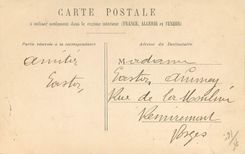 CARTE POSTALE
à utiliser seulement dans le régime intérieur (FRANCE, ALGÉRIE et TUNISIE)
Partie réservée à la correspondance
Adresse du Destinataire
amitiés
Gaston
Madame
Gaston
Rue de la Mouline
Remiremont
Vosges